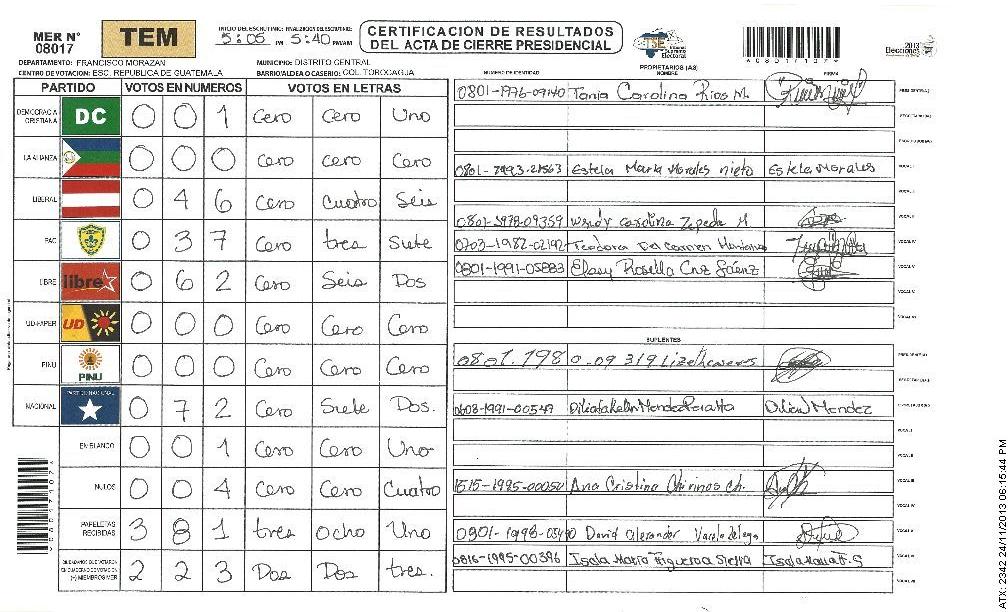 MER N° 08017
TEM
INICIO DEL ESCRUTINIO: FINALIZACION DEL ESCRUTINIO:
5:05 PM 5:40 PM/AM
CERTIFICACION DE RESULTADOS
DEL ACTA DE CIERRE PRESIDENCIAL
TSE Tribunal Supremo Electoral
2013 Elecciones
A08017107A
DEPARTAMENTO: FRANCISCO MORAZAN MUNICIPIO: DISTRITO CENTRAL
CENTRO DE VOTACION: ESC. REPUBLICA DE GUATEMALA BARRIO/ALDEA O CASERIO: COL. TOROCAGUA
PROPIETARIOS (AS)
NUMERO DE IDENTIDAD NOMBRE FIRMA
PARTIDO VOTOS EN NUMEROS VOTOS EN LETRAS
DEMOCRACIA CRISTIANA DC 0 0 1 Cero Cero Uno
LA ALIANZA 0 0 0 Cero cero Cero
LIBERAL 0 4 6 Cero Cuatro Seis
PAC 0 3 7 Cero tres Siete
LIBRE libre 0 6 2 Cero Seis Dos
UD-FAPER UD 0 0 0 Cero Cero Cero
PINU PINU 0 0 0 Cero Cero Cero
NACIONAL PARTIDO NACIONAL 0 7 2 Cero Siete Dos.
EN BLANCO 0 0 1 Cero Cero Uno
NULOS 0 0 4 Cero Cero Cuatro
PAPELETAS RECIBIDAS 3 8 1 tres Ocho Uno
CIUDADANOS QUE VOTARON EN CUADERNO DE VOTACION (+) MIEMBROS MER 2 2 3 Dos Dos tres.
0801-1976-09140 Tania Carolina Rios M. PRESIDENTE(A)
SECRETARIO(A)
ESCRUTADOR(A)
Estela Maria Morales nieto Estela Morales VOCAL I
VOCAL II
0801-1978-09359 Wendy Carolina Zepeda M.
0703-1982-02192 Teodora Del Carmen VOCAL IV
0801-1991-05883 Elasy Rosella Cruz Sáenz VOCAL V
SUPLENTES
0801.198 0-09319 PRESIDENTE(A)
SECRETARIO(A)
0608-1991-00549 Mendez Peralta Dilian Mendez ESCRUTADOR(A)
VOCAL I
VOCAL II
1515-1995-00054 Ana Cristina Chirinos Ch. VOCAL III
VOCAL IV
David alexander VOCAL V
0816-1995-00396 Isela Maria Figueroa Sierra
ATX: 2342 24/11/2013 06:15:44 PM